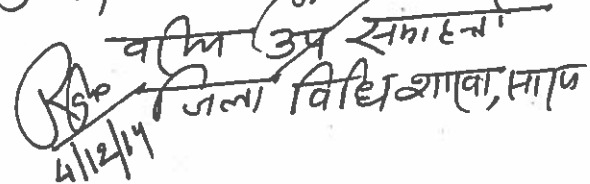 वरीय उप समाहर्त्ता
जिला विधि शाखा, सारण
4/12/14